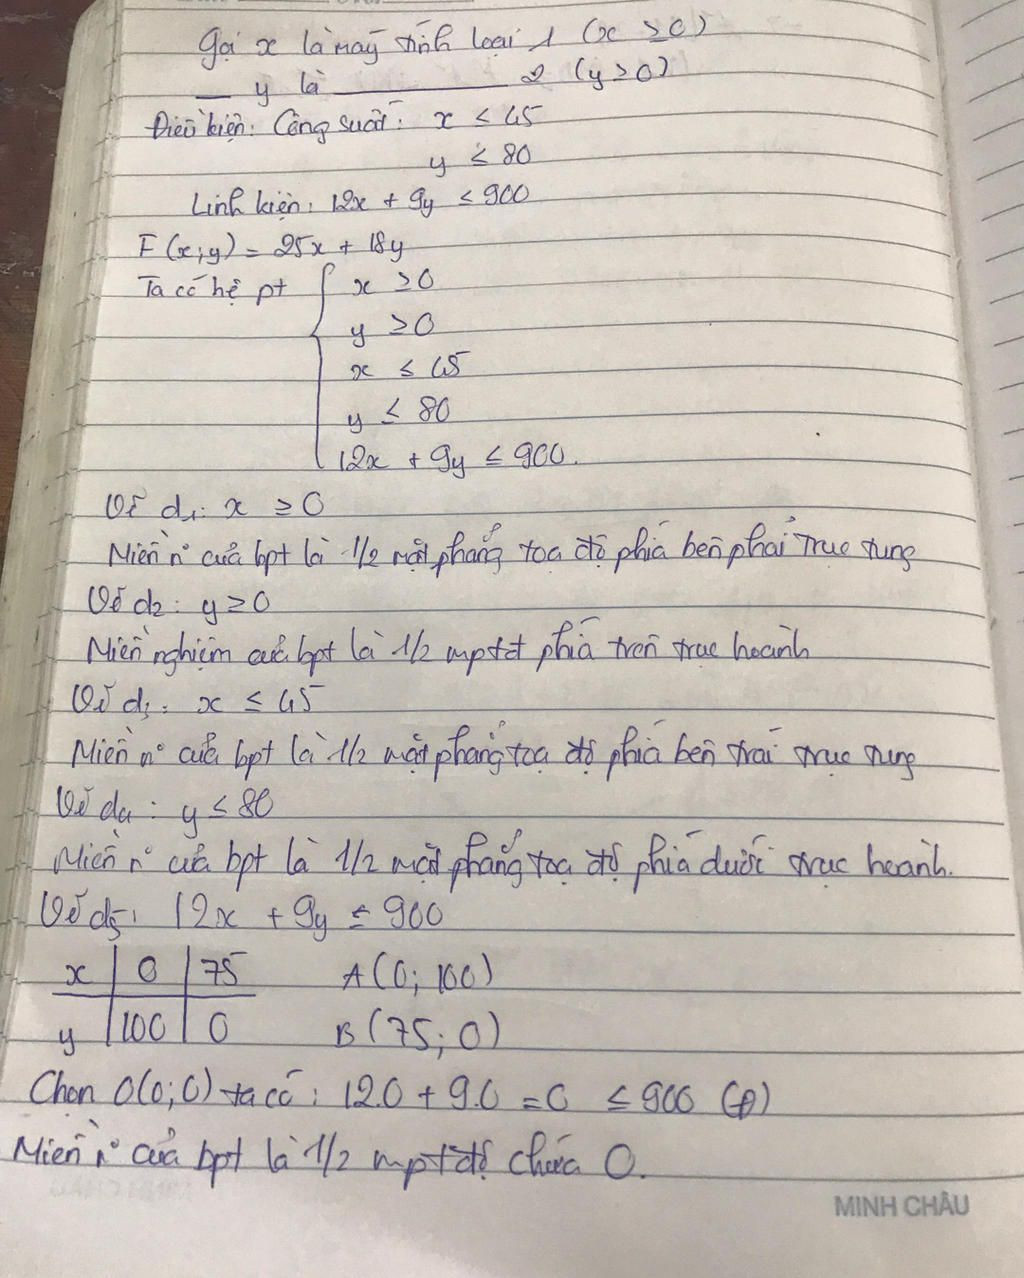 Gọi x là máy tính loại 1 (x ≥ 0)
__ y là ________ 2 (y ≥ 0)
Điều kiện: Công suất: x ≤ 45
y ≤ 80
Linh kiện: 12x + 9y ≤ 900
F(x;y) = 25x + 18y
Ta có hệ pt { x ≥ 0
y ≥ 0
x ≤ 45
y ≤ 80
12x + 9y ≤ 900.
Vẽ d1: x ≥ 0
Miền n° của bpt là 1/2 mặt phẳng toạ độ phía bên phải trục tung
Vẽ d2: y ≥ 0
Miền nghiệm của bpt là 1/2 mptđ phía trên trục hoành
Vẽ d3: x ≤ 45
Miền n° của bpt là 1/2 mặt phẳng toạ độ phía bên trái trục tung
Vẽ d4: y ≤ 80
Miền n° của bpt là 1/2 mặt phẳng toạ độ phía dưới trục hoành.
Vẽ d5: 12x + 9y ≤ 900
x | 0 | 75 A(0; 100)
y | 100 | 0 B(75; 0)
Chọn O(0;0) ta có: 12.0 + 9.0 = 0 ≤ 900 (đ)
Miền n° của bpt là 1/2 mptđộ chứa O.
MINH CHÂU